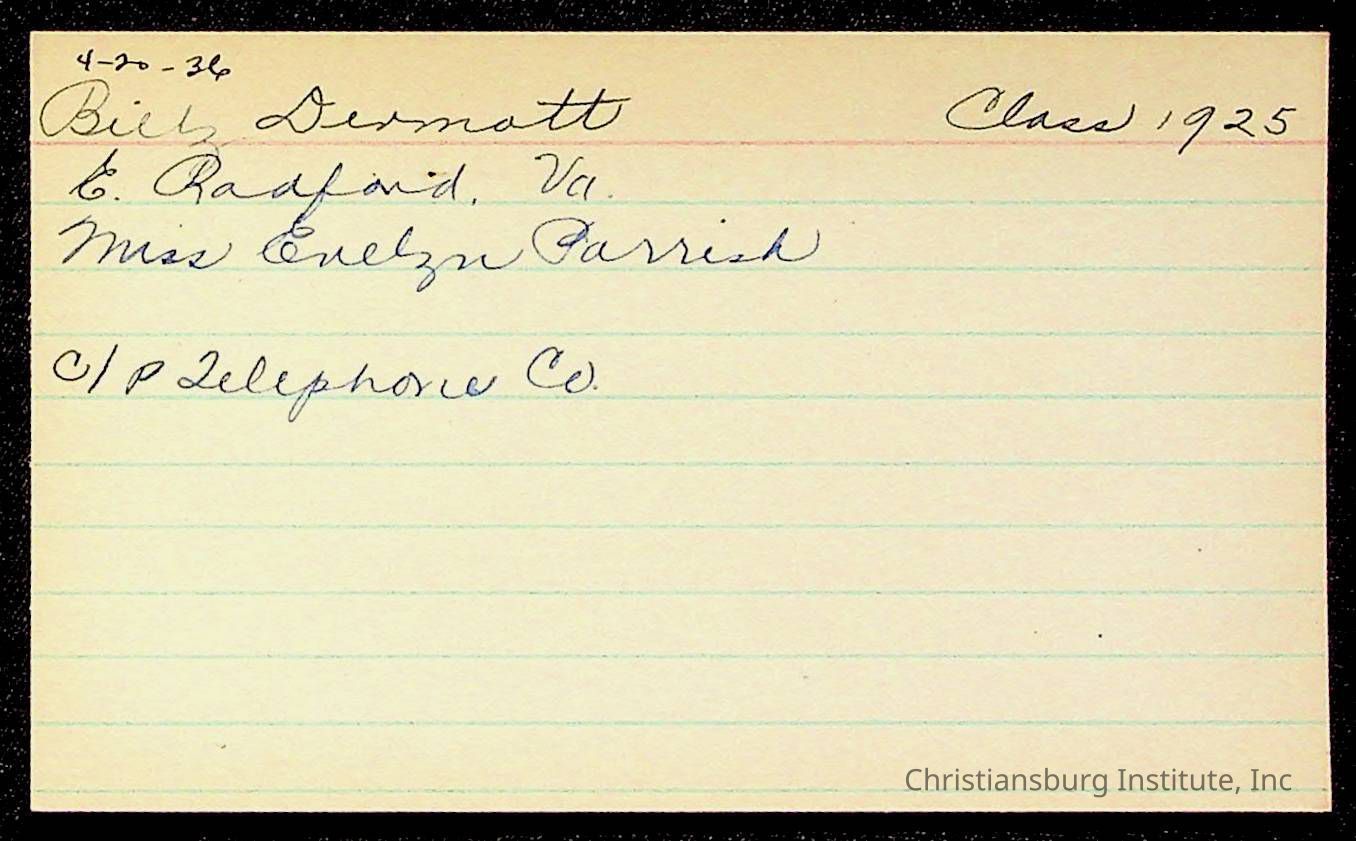 4-20-36
Billy Dermott Class 1925
E. Radford, Va.
Miss Evelyn Parrish
C/P Telephone Co.
Christiansburg Institute, Inc